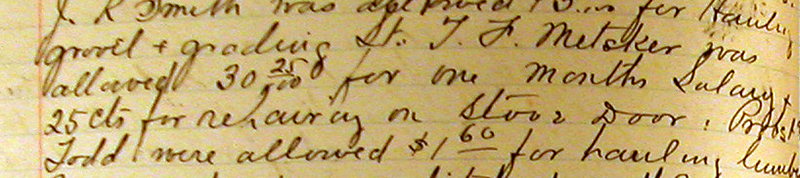 J. R Smith was allowed for Hauling
gravel + grading St. T. F. Metsker was
allowed 30 25/100 for one months Salary +
25 cts for rehairing on Stoor Door. Probst
Todd were allowed $1 60 for hauling lumbe